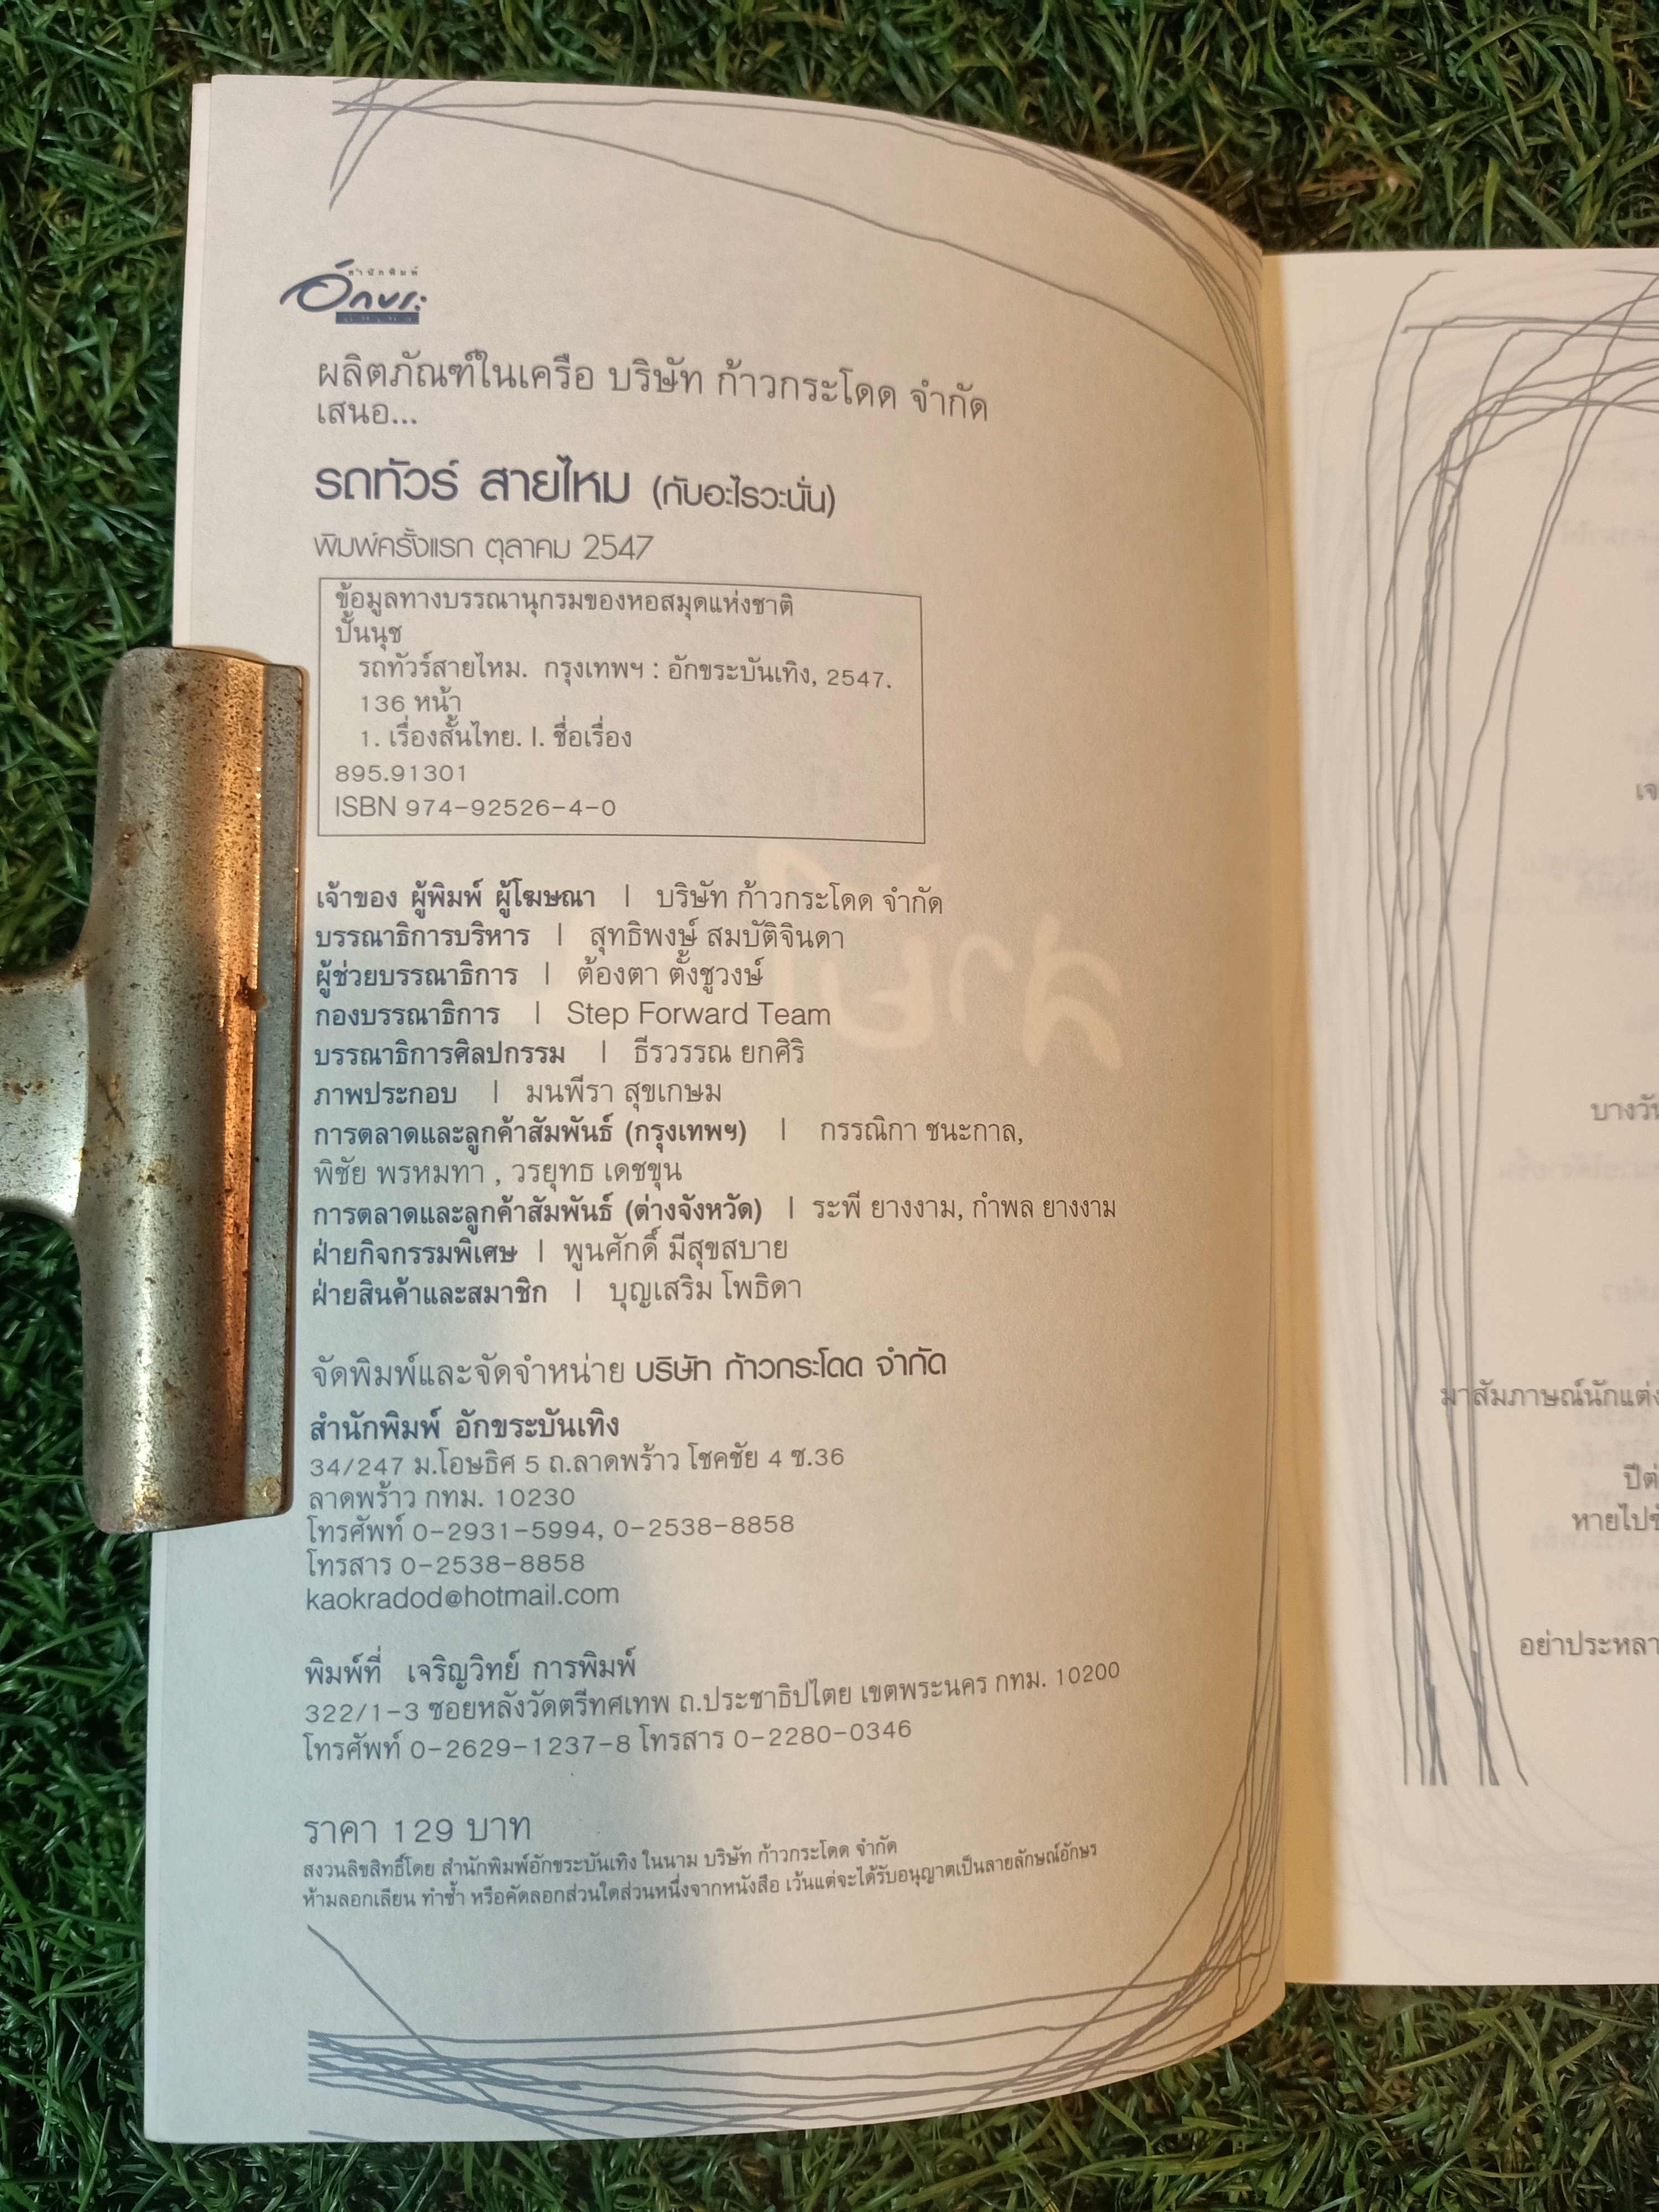 สำนักพิมพ์
อักขระ
บันเทิง
ผลิตภัณฑ์ในเครือ บริษัท ก้าวกระโดด จำกัด
เสนอ...
รถทัวร์ สายไหม (กับอะไรวะนั่น)
พิมพ์ครั้งแรก ตุลาคม 2547
ข้อมูลทางบรรณานุกรมของหอสมุดแห่งชาติ
ปั้นนุช
รถทัวร์สายไหม. กรุงเทพฯ : อักขระบันเทิง, 2547.
136 หน้า
1. เรื่องสั้นไทย. I. ชื่อเรื่อง
895.91301
ISBN 974-92526-4-0
เจ้าของ ผู้พิมพ์ ผู้โฆษณา | บริษัท ก้าวกระโดด จำกัด
บรรณาธิการบริหาร | สุทธิพงษ์ สมบัติจินดา
ผู้ช่วยบรรณาธิการ | ต้องตา ตั้งชูวงษ์
กองบรรณาธิการ | Step Forward Team
บรรณาธิการศิลปกรรม | ธีรวรรณ ยกศิริ
ภาพประกอบ | มนพีรา สุขเกษม
การตลาดและลูกค้าสัมพันธ์ (กรุงเทพฯ) | กรรณิกา ชนะกาล,
พิชัย พรหมทา , วรยุทธ เดชขุน
การตลาดและลูกค้าสัมพันธ์ (ต่างจังหวัด) | ระพี ยางงาม, กำพล ยางงาม
ฝ่ายกิจกรรมพิเศษ | พูนศักดิ์ มีสุขสบาย
ฝ่ายสินค้าและสมาชิก | บุญเสริม โพธิดา
จัดพิมพ์และจัดจำหน่าย บริษัท ก้าวกระโดด จำกัด
สำนักพิมพ์ อักขระบันเทิง
34/247 ม.โอษธิศ 5 ถ.ลาดพร้าว โชคชัย 4 ซ.36
ลาดพร้าว กทม. 10230
โทรศัพท์ 0-2931-5994, 0-2538-8858
โทรสาร 0-2538-8858
kaokradod@hotmail.com
พิมพ์ที่ เจริญวิทย์ การพิมพ์
322/1-3 ซอยหลังวัดตรีทศเทพ ถ.ประชาธิปไตย เขตพระนคร กทม. 10200
โทรศัพท์ 0-2629-1237-8 โทรสาร 0-2280-0346
ราคา 129 บาท
สงวนลิขสิทธิ์โดย สำนักพิมพ์อักขระบันเทิง ในนาม บริษัท ก้าวกระโดด จำกัด
ห้ามลอกเลียน ทำซ้ำ หรือคัดลอกส่วนใดส่วนหนึ่งจากหนังสือ เว้นแต่จะได้รับอนุญาตเป็นลายลักษณ์อักษร
บางวัน
มาสัมภาษณ์นักแต่ง
ปีต่
หายไปข้
อย่าประหลา